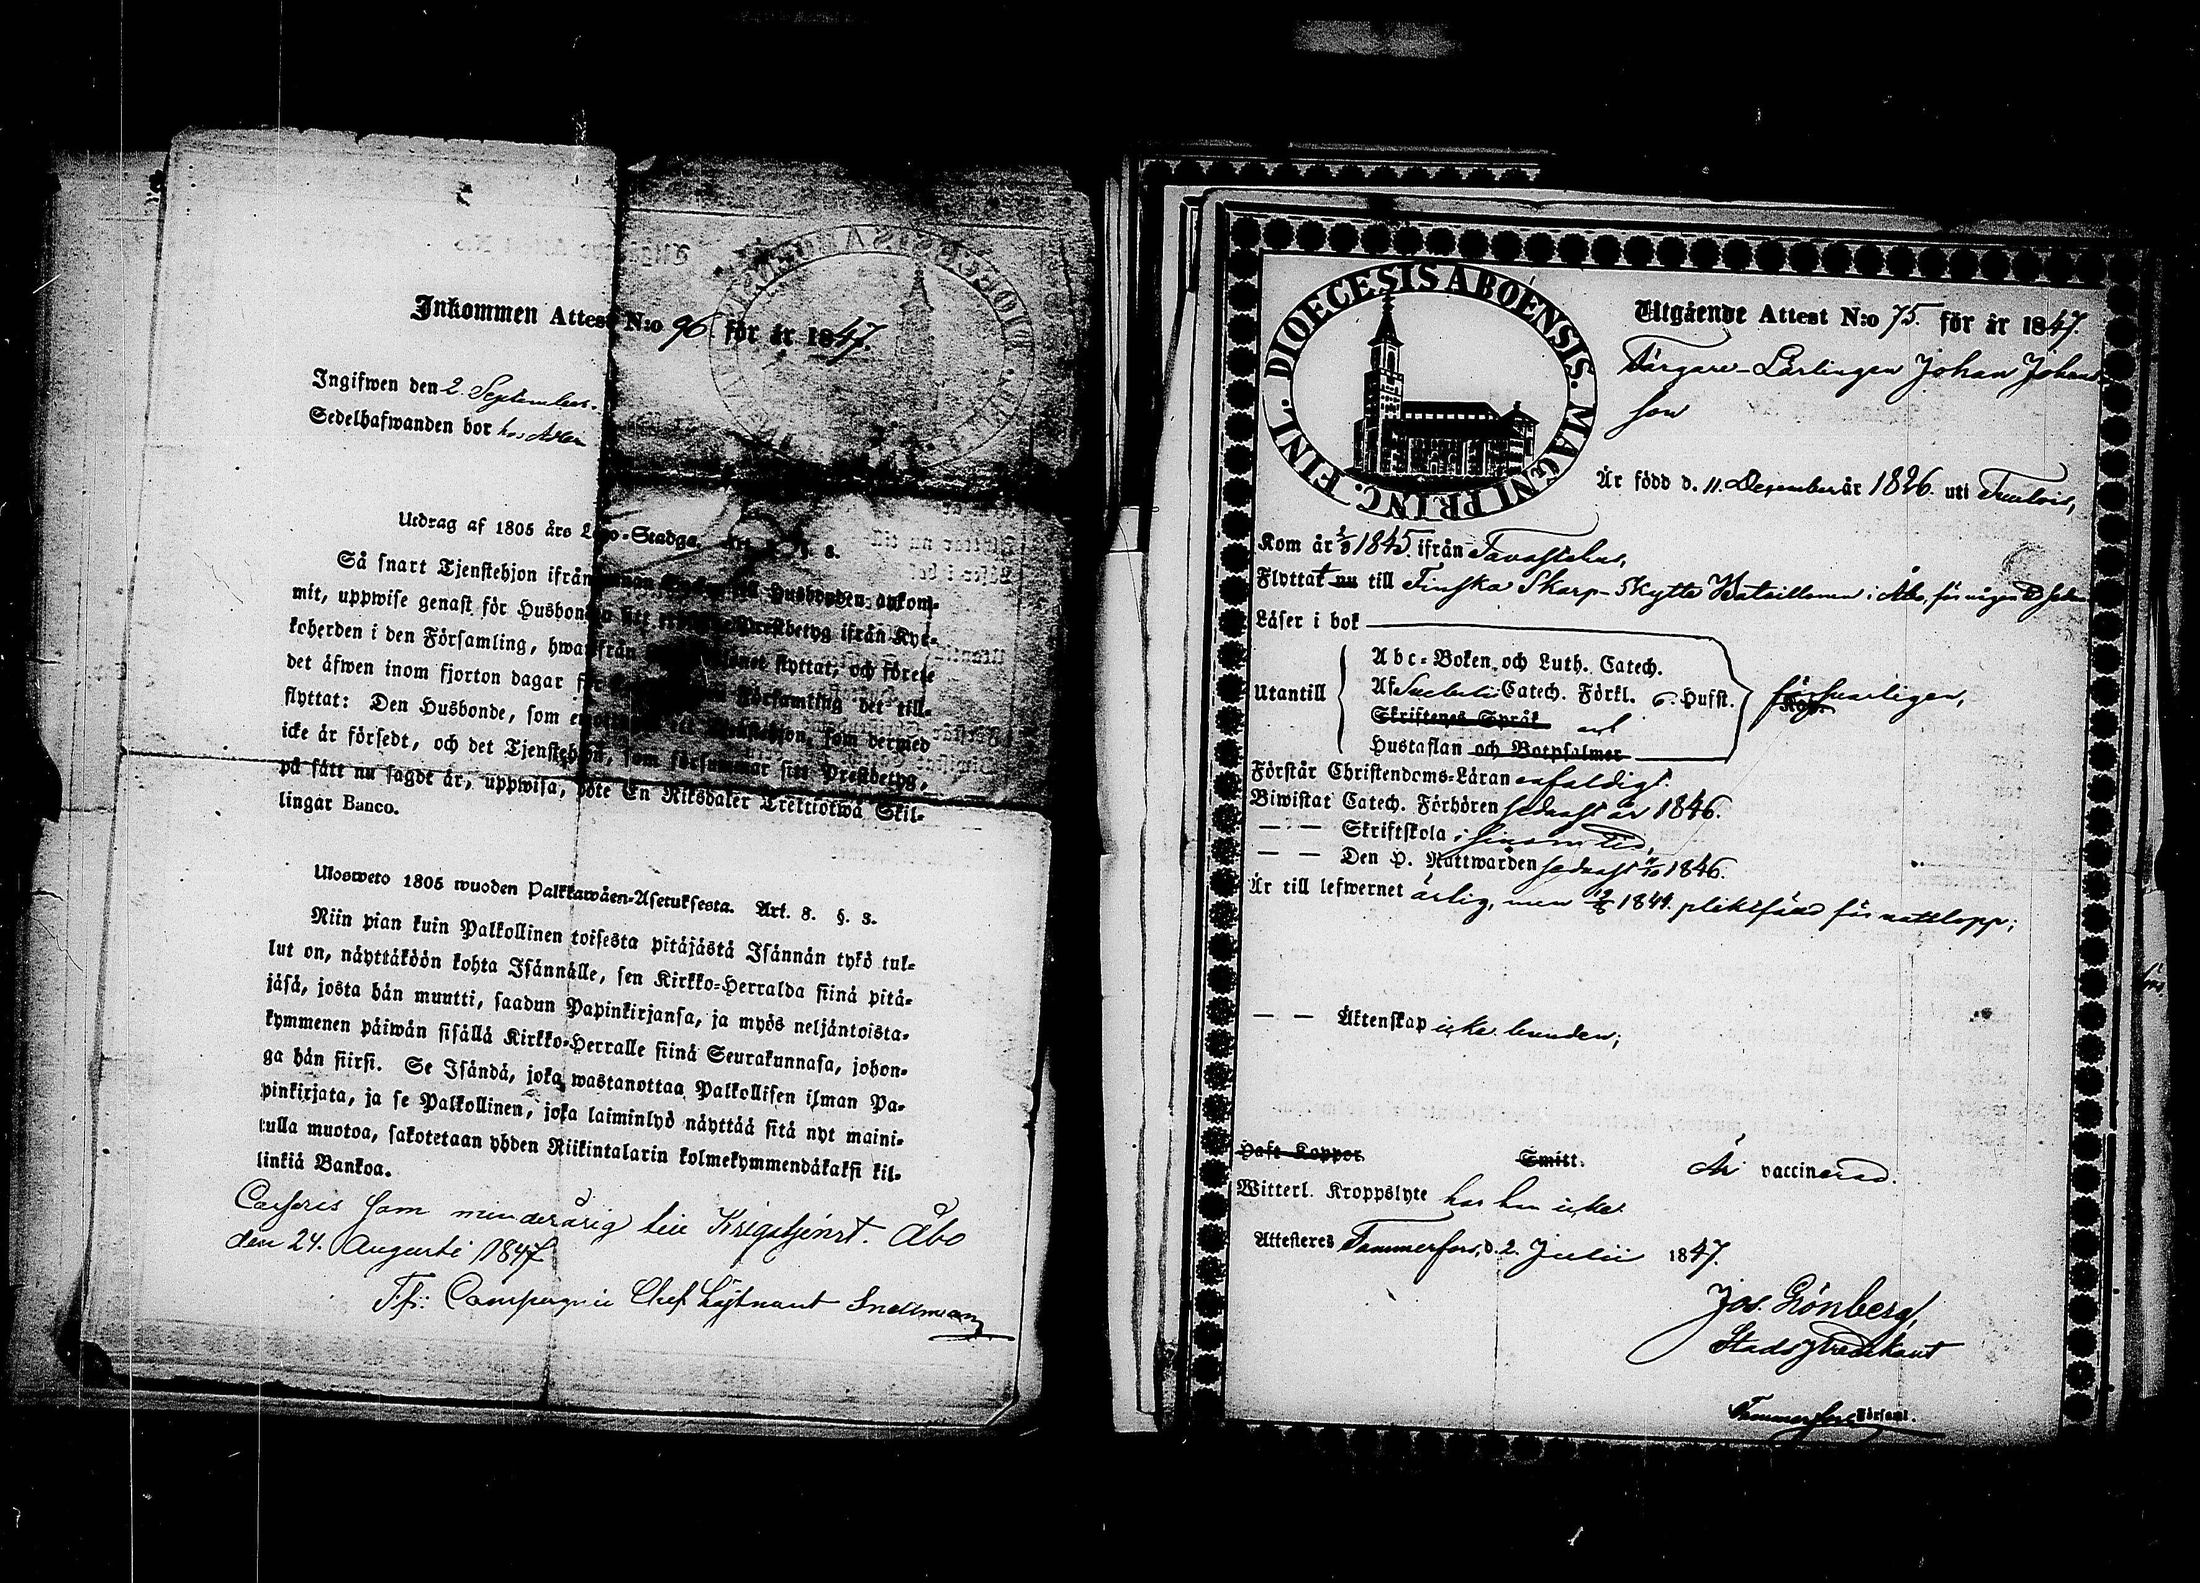 Inkommen Attest N:o 96. för år 1847.
Ingifwen den 2. September.
Sedelhafwanden bor hos
Utdrag af 1805 års Lego-Stadga. Art. 8. §. 3.
Så snart Tjenstehjon ifrån annan Husbonden ankom-
mit, uppwise genast för Husbonden sitt Prestbetyg ifrån Kyr-
koherden i den Församling, hwarifrån flyttat, och förete
det äfwen inom fjorton dagar för Församling det till-
flyttat: Den Husbonde, som emottager Tjenstehjon, som dermed
icke är försedt, och det Tjenstehjon, som försummar sitt Prestbetyg,
på sätt nu sagdt är, uppwisa, böte En Riksdaler Trettiotwå Skil-
lingar Banco.
Ulosweto 1805 wuoden Palkkawäen-Asetuksesta. Art. 8. §. 3.
Niin pian kuin Palkollinen toisesta pitäjästä Isännän tykö tul-
lut on, näyttäköön kohta Isännälle, sen Kirkko-Herralda siinä pitä-
jäsä, josta hän muutti, saadun Papinkirjansa, ja myös neljäntoista-
kymmenen päiwän sisällä Kirkko-Herralle siinä Seurakunnasa, johon-
ga hän siirsi. Se Isändä, joka wastanottaa Palkollisen ilman Pa-
pinkirjata, ja se Palkollinen, joka laiminlyö näyttää sitä nyt maini-
tulla muotoa, sakotetaan yhden Riikintalarin kolmekymmendäkaksi kil-
linkiä Bankoa.
Casseris som minderårig till Krigstjenst. Åbo
den 24. Augusti 1847
Tf: Compagnie Chef Löjtnant Snellman
DIOECESIS ABOENSIS. MAGNI PRINC. FINL.
Utgående Attest N:o 75. för år 1847.
Färgare-Lärlingen Johan Johans-
son
Är född d. 11. December år 1826. uti
Kom år 1845. ifrån Tavastehus,
Flyttat nu till Finska Skarp-Skytte Bataillonen i Åbo, för någon
Läser i bok
Abc-Boken och Luth. Catech.
Utantill Af Svebelii Catech. Förkl. 6. Hufst. försvarligen,
Skriftenes Språk
Hustaflan och Botpsalmer
Förstår Christendoms-Läran enfaldigt.
Biwistat Catech. Förhören sednast år 1846.
— — Skriftskola i sinom tid,
— — Den H. Nattwarden sednast 1846.
Är till lefwernet ärlig, men 1844. pliktfäld för nattlopp;
— — Äktenskap icke bunden;
Haft Koppor Smitt. Är vaccinerad.
Witterl. Kroppslyte har han icke
Attesteres Tammerfors, d. 2. Julii 1847.
Jos. Grönberg,
Stads Predikant
Tammerfors Församl.